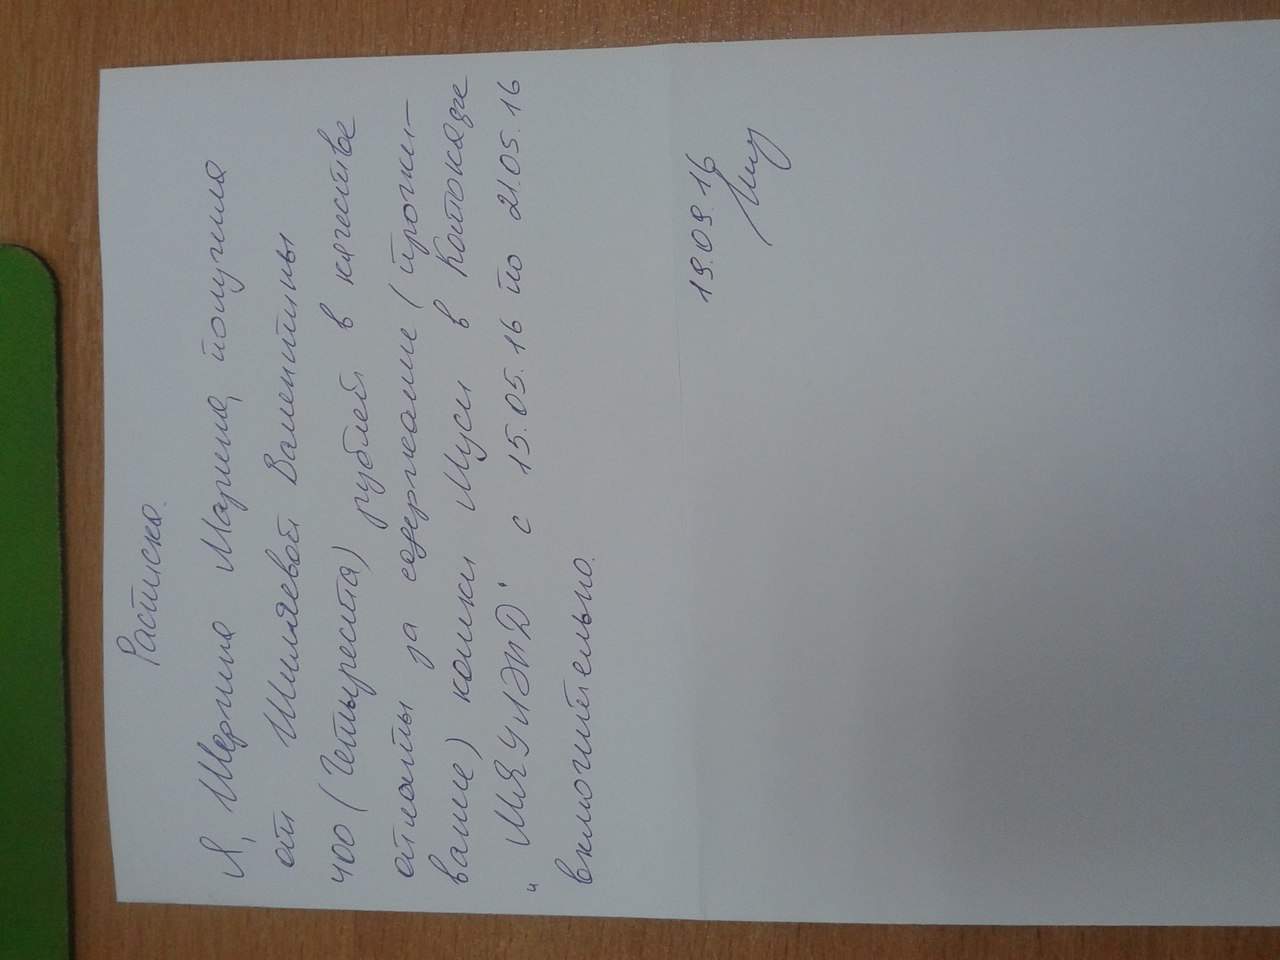 Расписка.
Я, Шергина Марина, получила
от Шиляевой Валентины
400 (Четыреста) рублей в качестве
оплаты за содержание (прожи-
вание) кошки Муси в Котокафе
"МЯУЛЭНД" с 15.05.16 по 21.05.16
включительно.
19.09.16